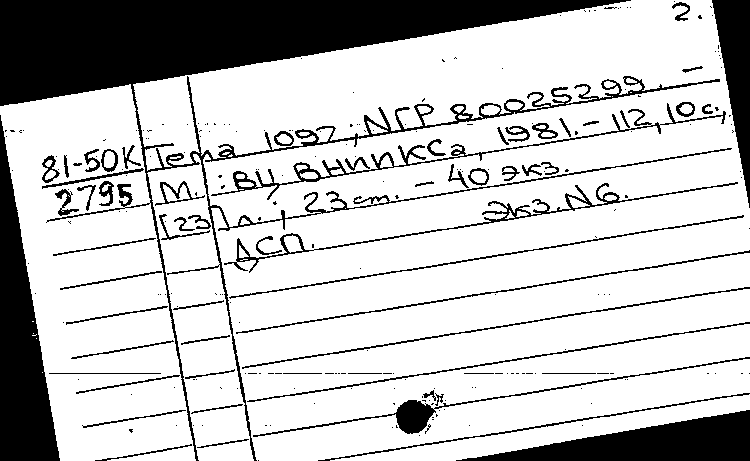 2.
81-50К Тема 1097; NГР 80025299. –
2795 М.: ВЦ ВНИПКСа, 1981.– 112, 10 с.,
[23] л.; 23 ст. – 40 экз.
ДСП. Экз. N6.